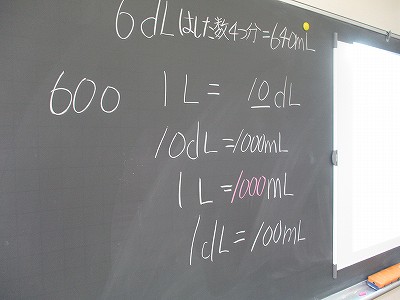 6dLはした数4つ分=640mL
600 1L= 10dL
10dL=1000mL
1L=1000mL
1dL=100mL